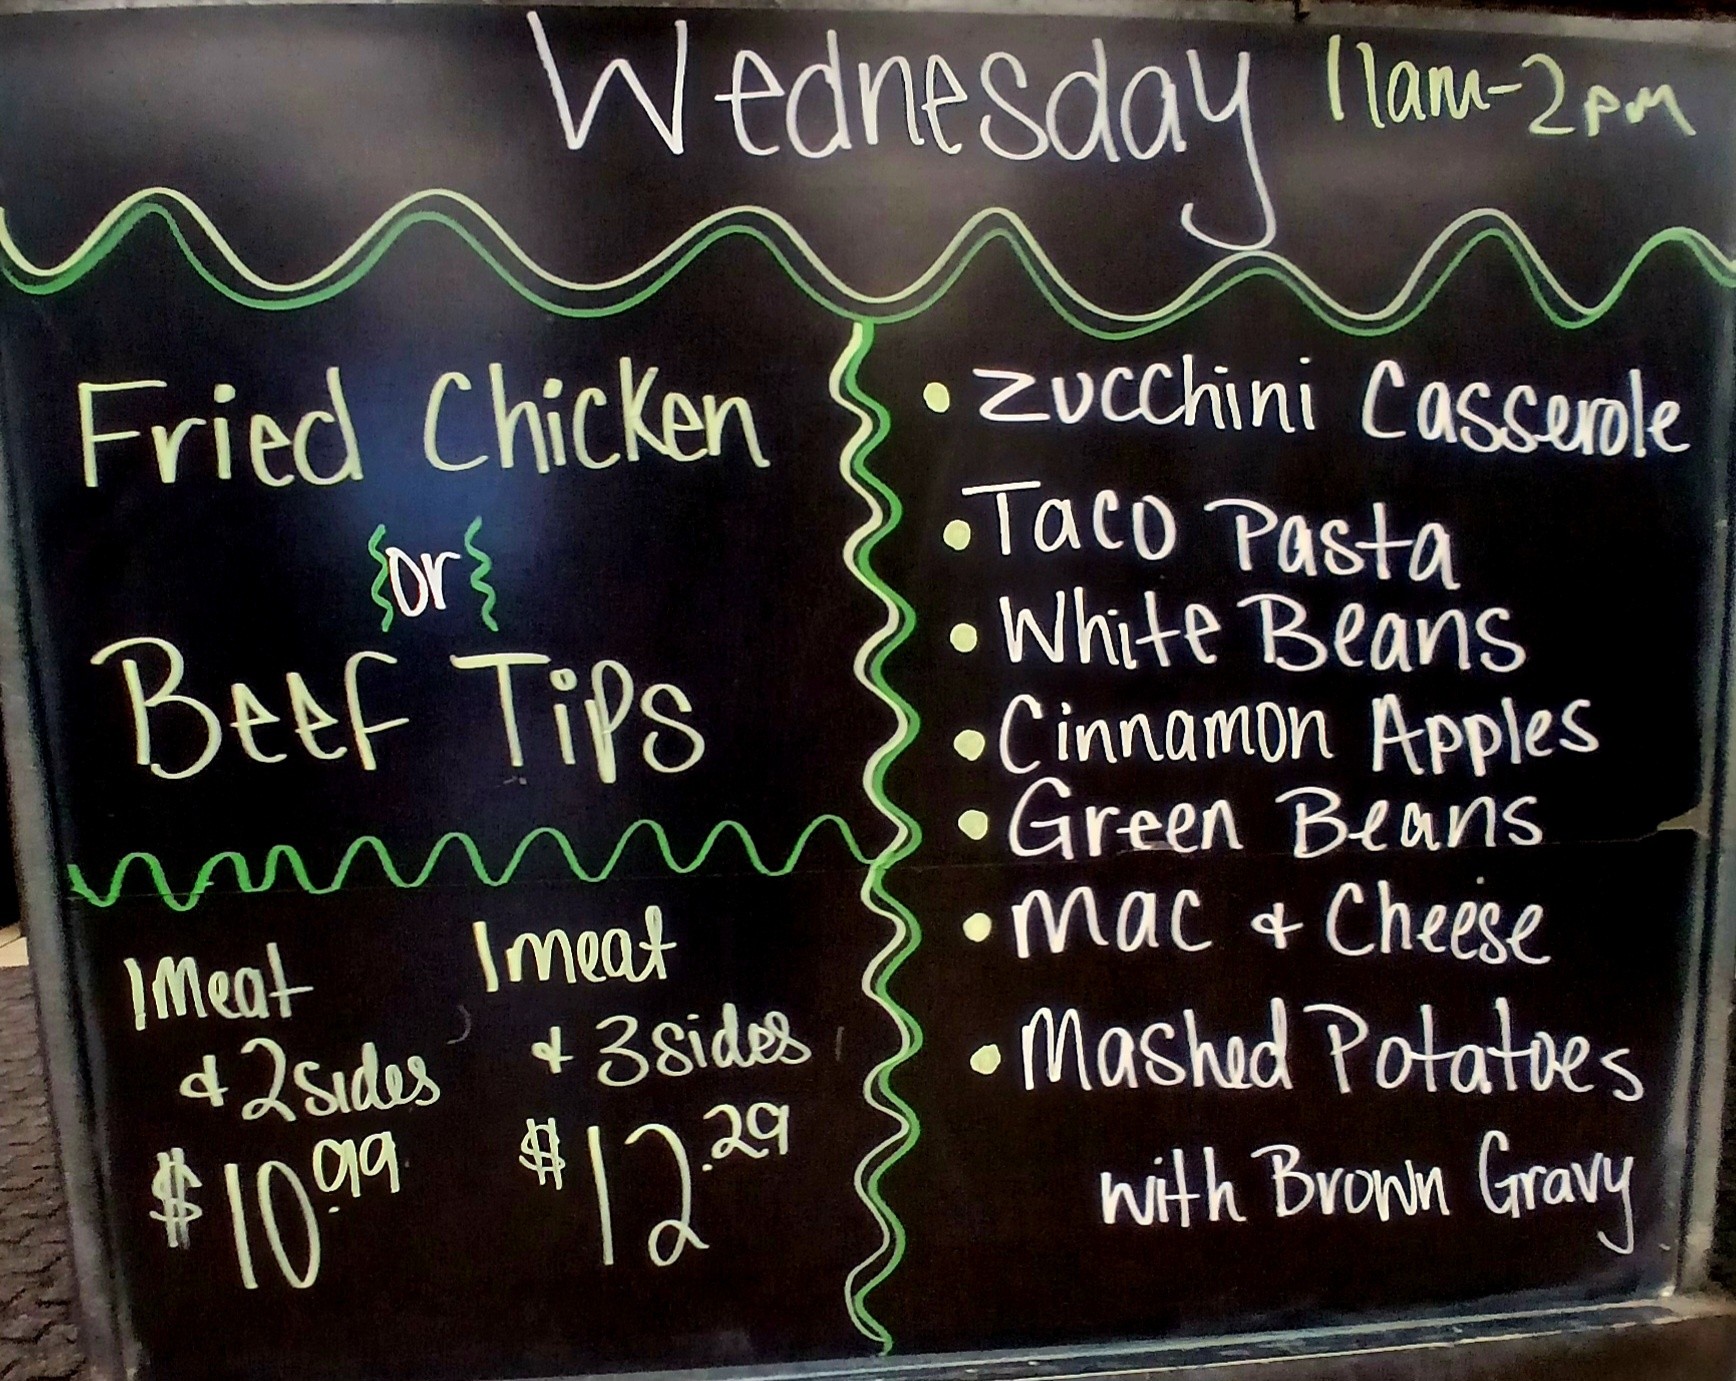 Wednesday 11am-2pm
Fried Chicken
or
Beef Tips
1 Meat
& 2 sides
$10.99
1 meat
& 3 sides
$12.29
• Zucchini Casserole
• Taco Pasta
• White Beans
• Cinnamon Apples
• Green Beans
• Mac & Cheese
• Mashed Potatoes
with Brown Gravy